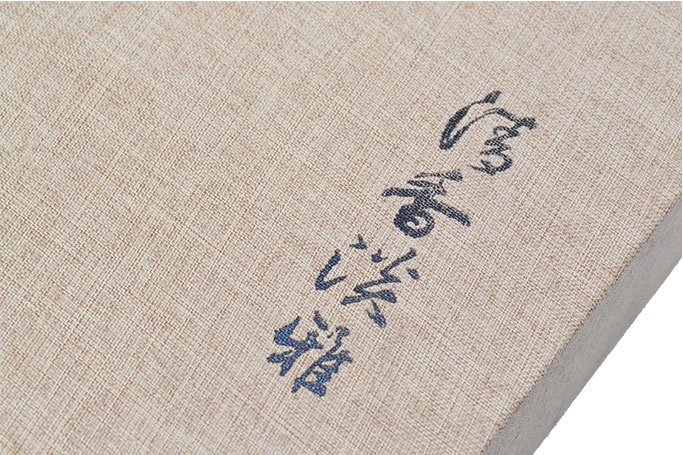 清香淡雅